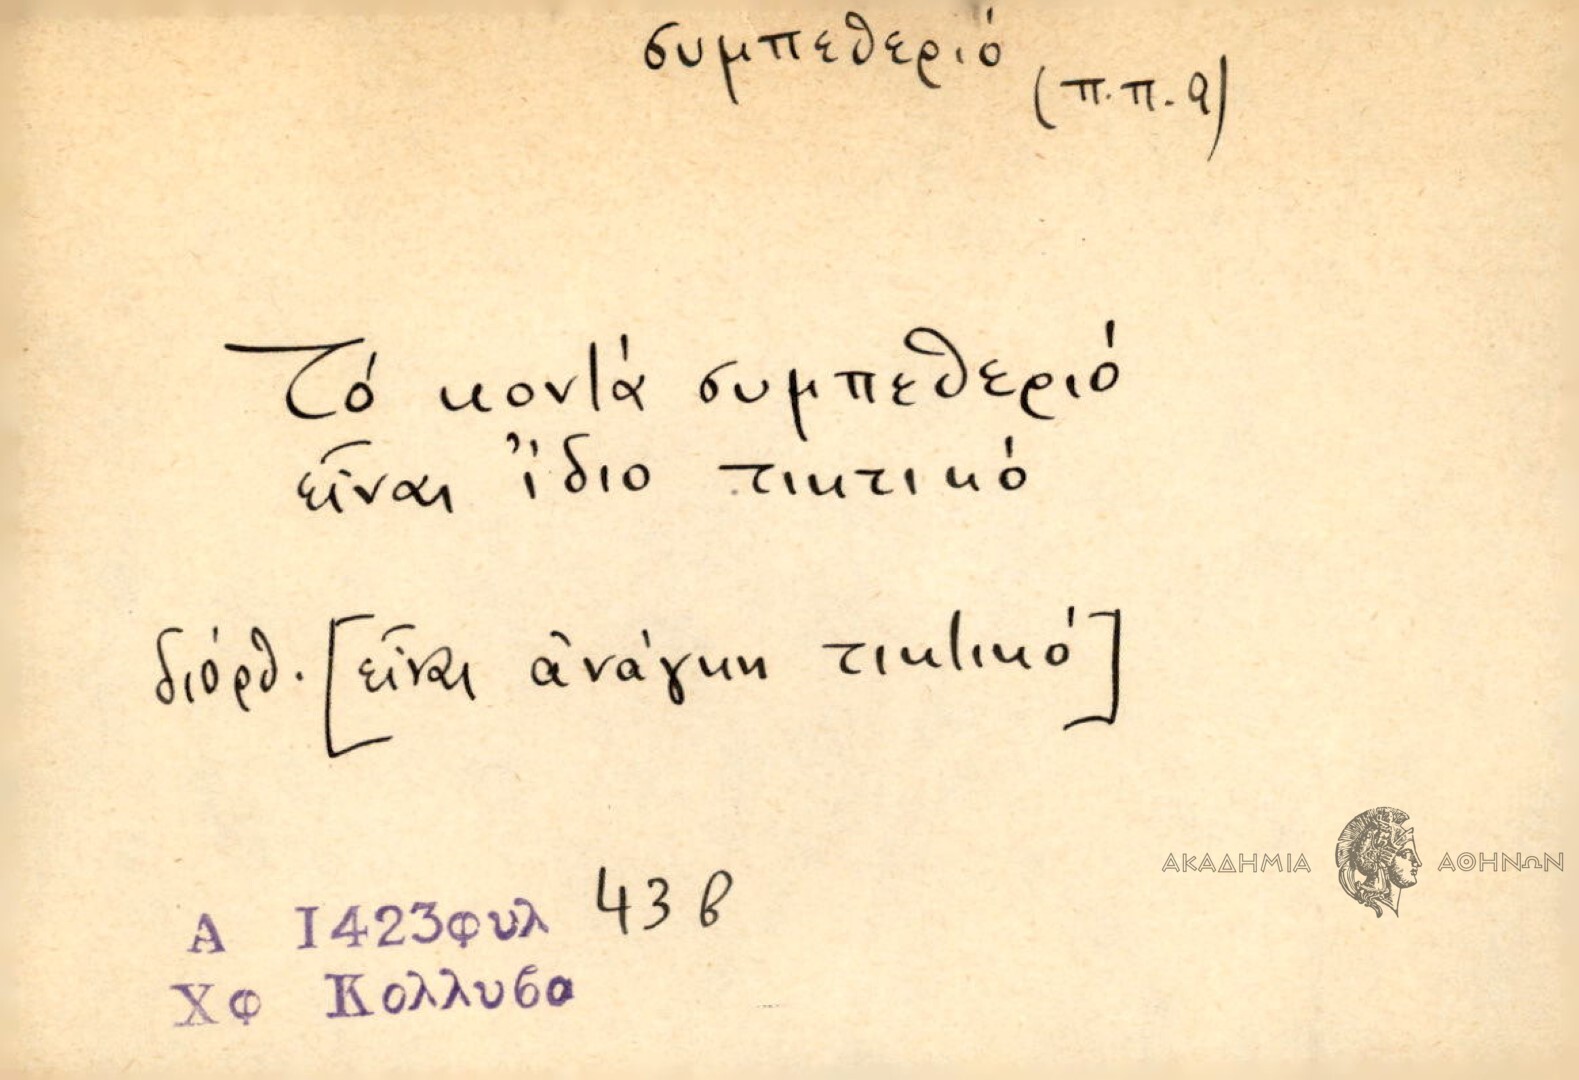 συμπεθεριό
(π.π.α)
Τό κοντά συμπεθεριό
εἶναι ἴδιο τικτικό
διόρθ. [εἶναι ἀνάγκη τικτικό]
Α 1423φυλ 43 β
Χφ Κολλυβα
ΑΚΑΔΗΜΙΑ ΑΘΗΝΩΝ